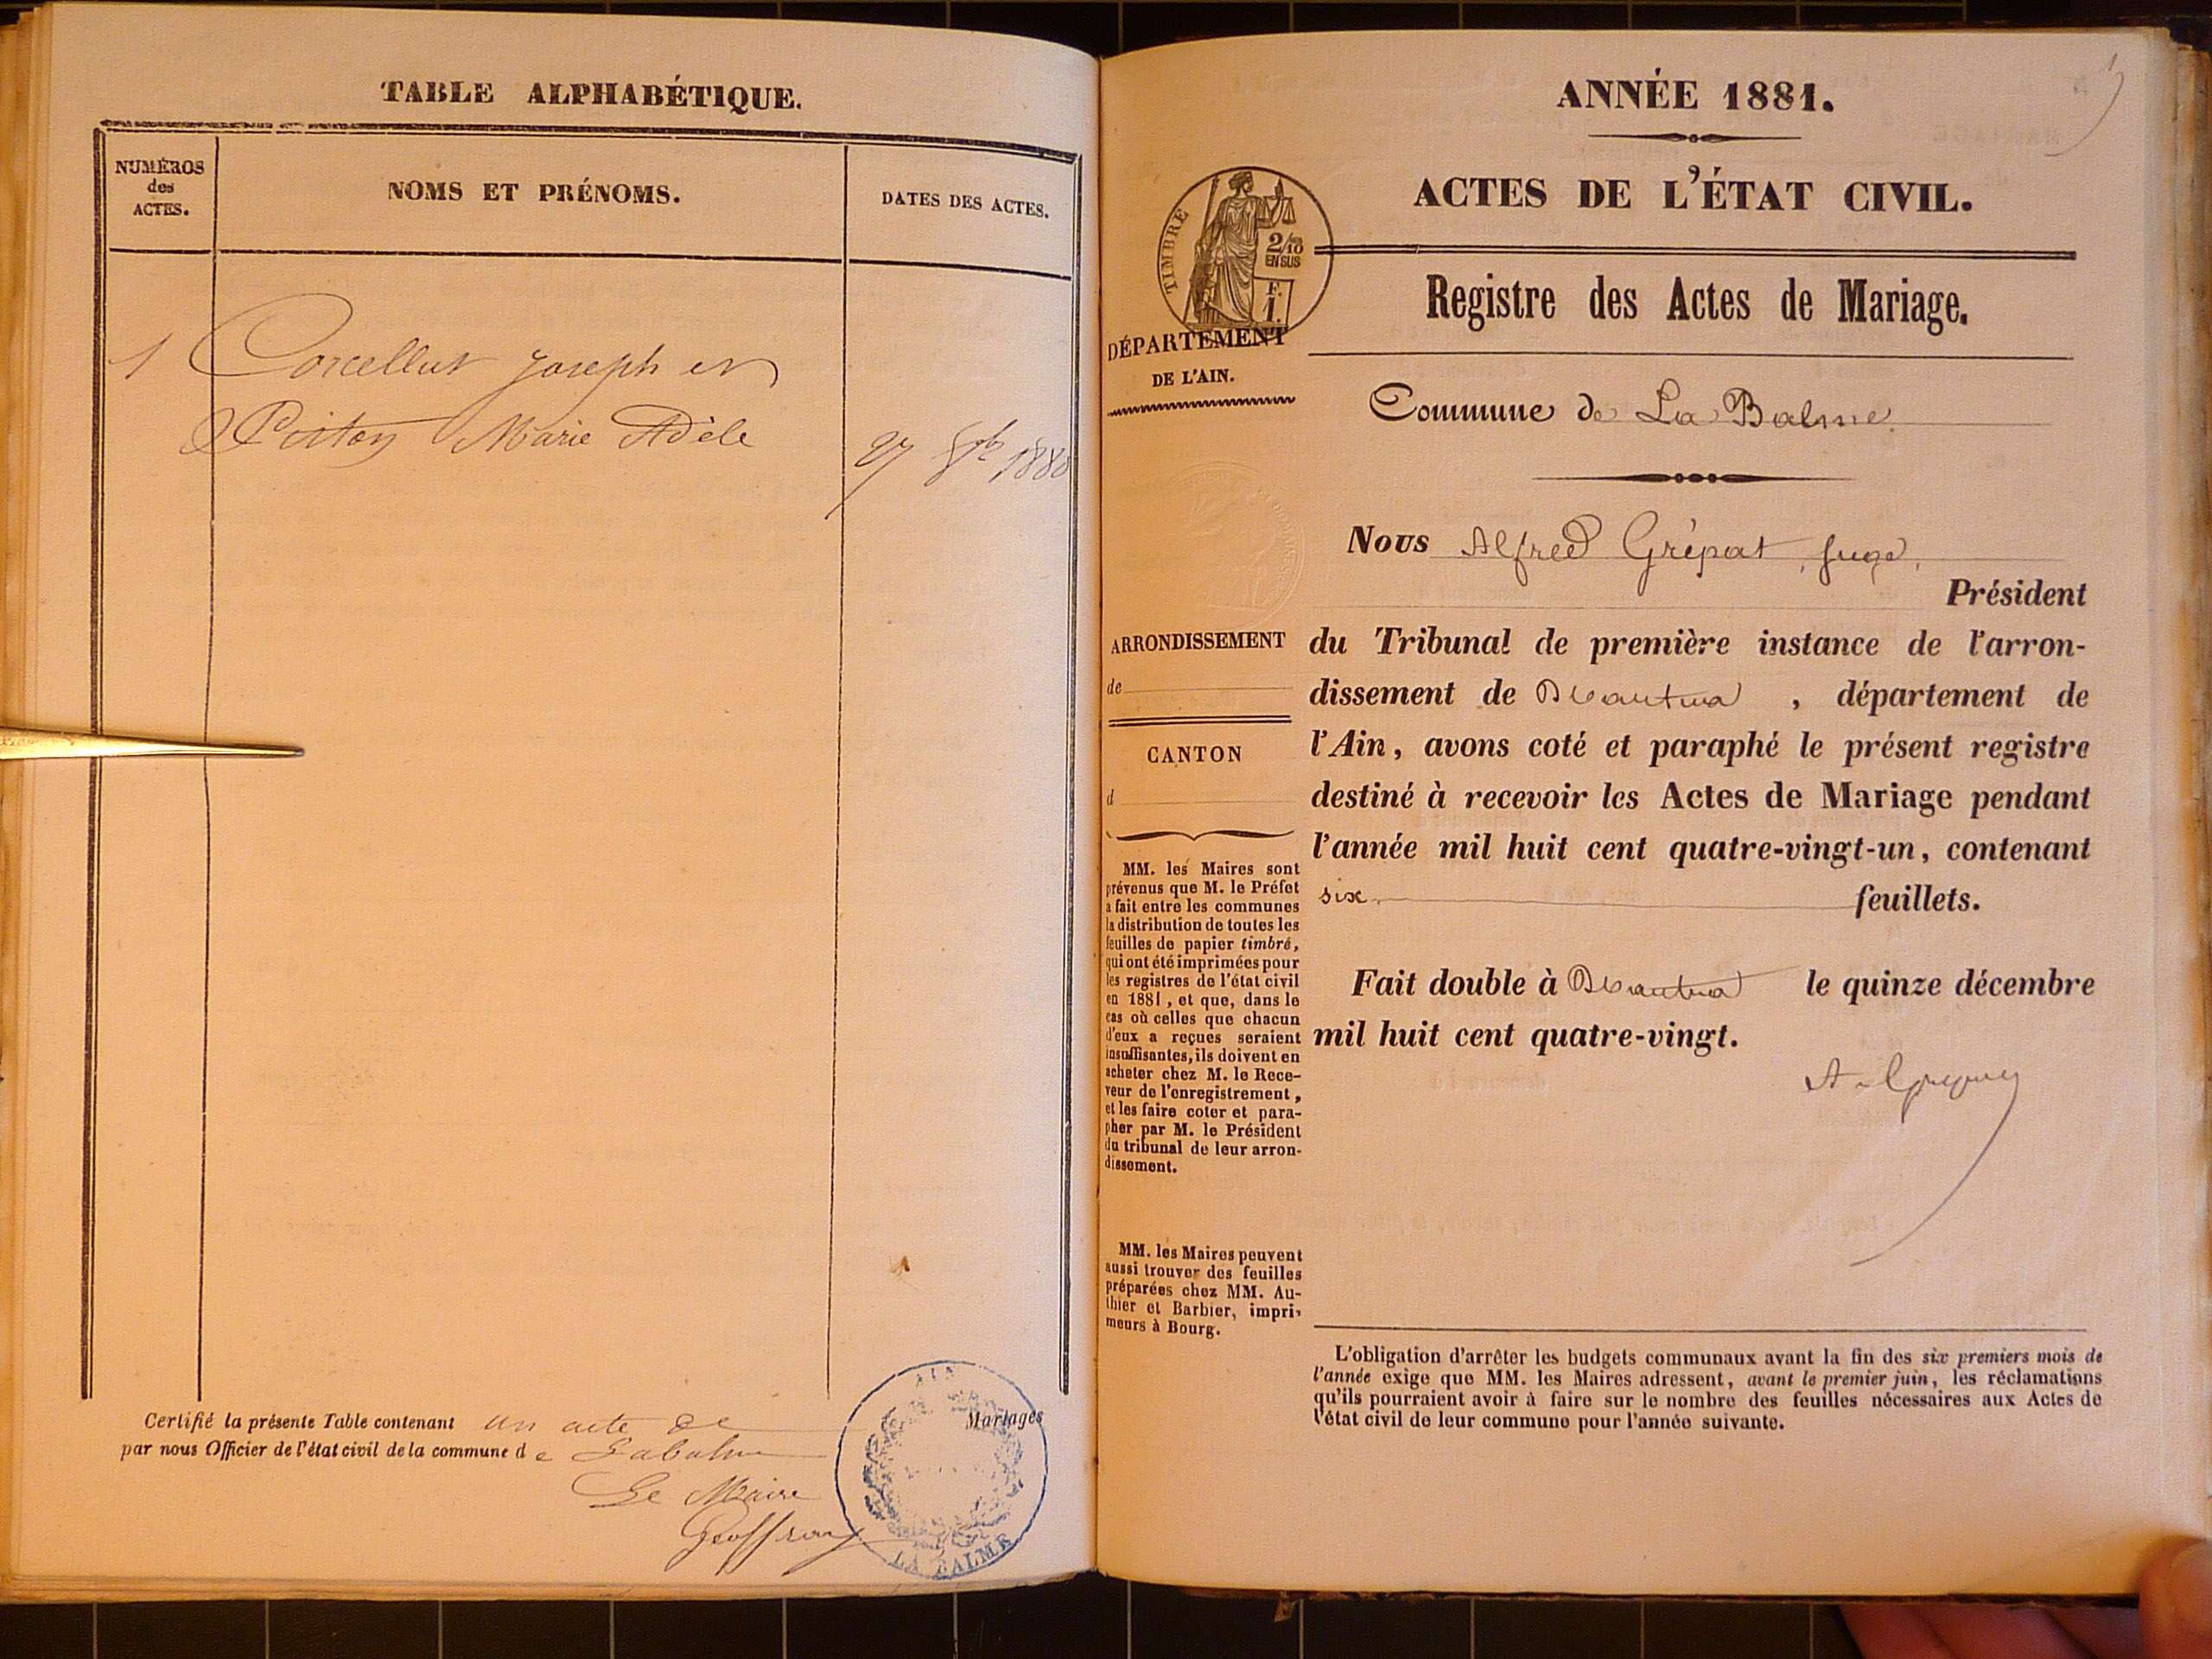 TABLE ALPHABÉTIQUE.
NUMÉROS
des
ACTES.
NOMS ET PRÉNOMS.
DATES DES ACTES.
1 Corcellut Joseph et
Piston Marie Adèle
27 8bre 1880
Certifié la présente Table contenant un acte de Mariages
par nous Officier de l'état civil de la commune de Labalme
Le Maire
Geoffray
AIN
LA BALME
ANNÉE 1881.
ACTES DE L'ÉTAT CIVIL.
Registre des Actes de Mariage.
TIMBRE
2/10
EN SUS
F.
1.
DÉPARTEMENT
DE L'AIN.
Commune de La Balme.
Nous Alfred Grépat, juge,
Président
du Tribunal de première instance de l'arron-
dissement de Nantua, département de
l'Ain, avons coté et paraphé le présent registre
destiné à recevoir les Actes de Mariage pendant
l'année mil huit cent quatre-vingt-un, contenant
six. feuillets.
Fait double à Nantua le quinze décembre
mil huit cent quatre-vingt.
ARRONDISSEMENT
de
CANTON
d
MM. les Maires sont
prévenus que M. le Préfet
a fait entre les communes
la distribution de toutes les
feuilles de papier timbré,
qui ont été imprimées pour
les registres de l'état civil
en 1881, et que, dans le
cas où celles que chacun
d'eux a reçues seraient
insuffisantes, ils doivent en
acheter chez M. le Rece-
veur de l'enregistrement,
et les faire coter et para-
pher par M. le Président
du tribunal de leur arron-
dissement.
MM. les Maires peuvent
aussi trouver des feuilles
préparées chez MM. Au-
thier et Barbier, impri-
meurs à Bourg.
L'obligation d'arrêter les budgets communaux avant la fin des six premiers mois de
l'année exige que MM. les Maires adressent, avant le premier juin, les réclamations
qu'ils pourraient avoir à faire sur le nombre des feuilles nécessaires aux Actes de
l'état civil de leur commune pour l'année suivante.